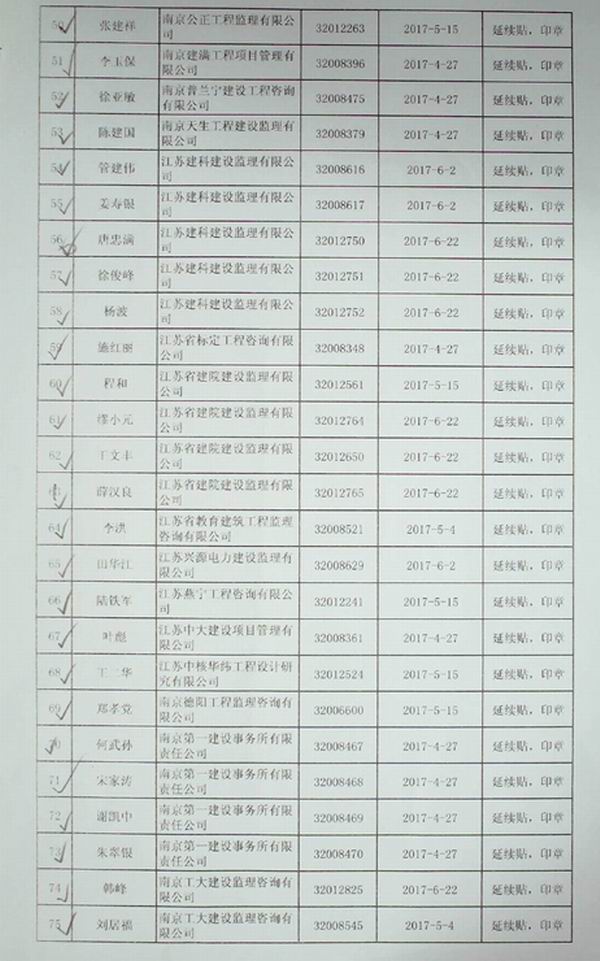 50 张建祥 南京公正工程监理有限公司 32012263 2017-5-15 延续贴，印章
51 李玉保 南京建满工程项目管理有限公司 32008396 2017-4-27 延续贴，印章
52 徐亚敏 南京普兰宁建设工程咨询有限公司 32008475 2017-4-27 延续贴，印章
53 陈建国 南京天生工程建设监理有限公司 32008379 2017-4-27 延续贴，印章
54 管建伟 江苏建科建设监理有限公司 32008616 2017-6-2 延续贴，印章
55 姜寿银 江苏建科建设监理有限公司 32008617 2017-6-2 延续贴，印章
56 唐忠满 江苏建科建设监理有限公司 32012750 2017-6-22 延续贴，印章
57 徐俊峰 江苏建科建设监理有限公司 32012751 2017-6-22 延续贴，印章
58 杨波 江苏建科建设监理有限公司 32012752 2017-6-22 延续贴，印章
59 施红丽 江苏省标定工程咨询有限公司 32008348 2017-4-27 延续贴，印章
60 程和 江苏省建院建设监理有限公司 32012561 2017-5-15 延续贴，印章
61 缪小元 江苏省建院建设监理有限公司 32012764 2017-6-22 延续贴，印章
62 丁文丰 江苏省建院建设监理有限公司 32012650 2017-6-22 延续贴，印章
63 薛汉良 江苏省建院建设监理有限公司 32012765 2017-6-22 延续贴，印章
64 李洪 江苏省教育建筑工程监理咨询有限公司 32008521 2017-5-4 延续贴，印章
65 田华江 江苏兴源电力建设监理有限公司 32008629 2017-6-2 延续贴，印章
66 陆铁军 江苏燕宁工程咨询有限公司 32012241 2017-5-15 延续贴，印章
67 叶彪 江苏中大建设项目管理有限公司 32008361 2017-4-27 延续贴，印章
68 王二华 江苏中核华纬工程设计研究有限公司 32012524 2017-5-15 延续贴，印章
69 郑孝党 南京德阳工程监理咨询有限公司 32006600 2017-5-15 延续贴，印章
70 何武孙 南京第一建设事务所有限责任公司 32008467 2017-4-27 延续贴，印章
71 宋家涛 南京第一建设事务所有限责任公司 32008468 2017-4-27 延续贴，印章
72 谢凯中 南京第一建设事务所有限责任公司 32008469 2017-4-27 延续贴，印章
73 朱翠银 南京第一建设事务所有限责任公司 32008470 2017-4-27 延续贴，印章
74 韩峰 南京工大建设监理咨询有限公司 32012825 2017-6-22 延续贴，印章
75 刘居福 南京工大建设监理咨询有限公司 32008545 2017-5-4 延续贴，印章